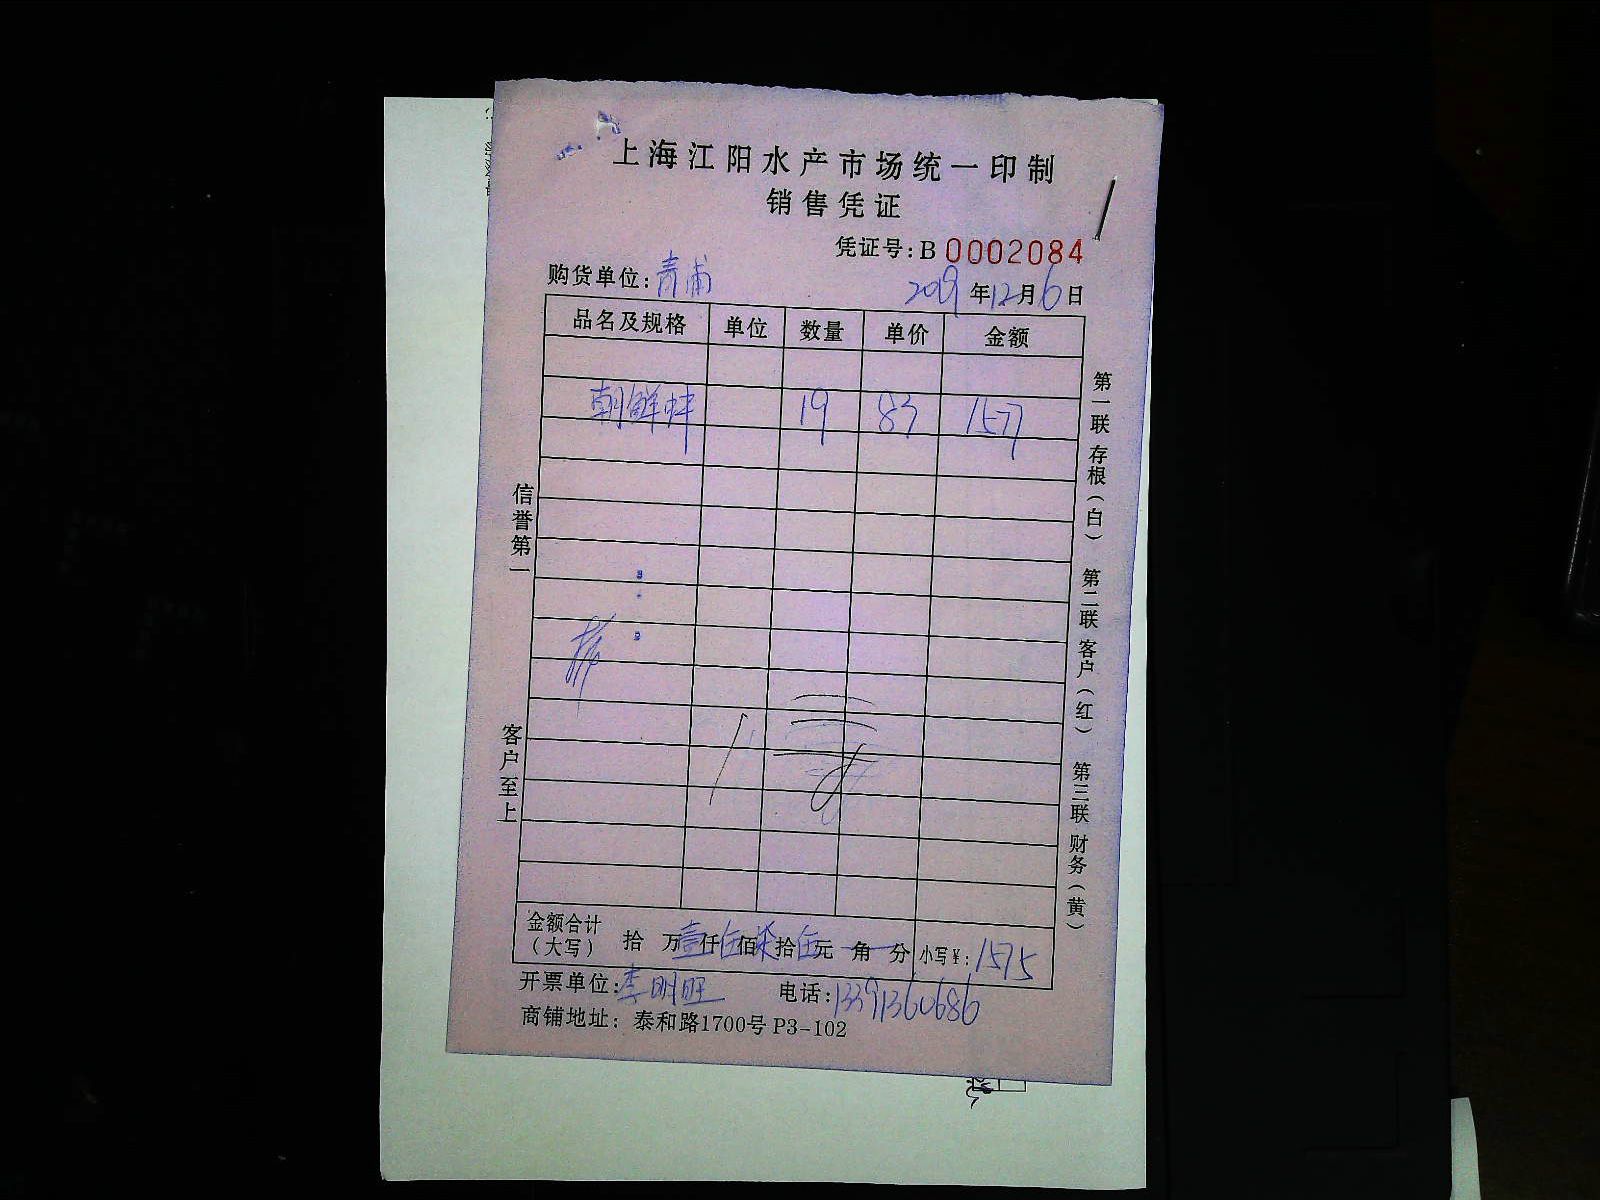 上海江阳水产市场统一印制
销售凭证
凭证号:B 0002084
购货单位:青浦 2019年12月6日
品名及规格 单位 数量 单价 金额
朝鲜蚌 19 83 1577
信誉第一
客户至上
第一联 存根(白) 第二联 客户(红) 第三联 财务(黄)
金额合计(大写) 拾 万壹仟伍佰柒拾伍元 角 分 小写¥:1575
开票单位:李明旺 电话:13391360686
商铺地址: 泰和路1700号 P3-102